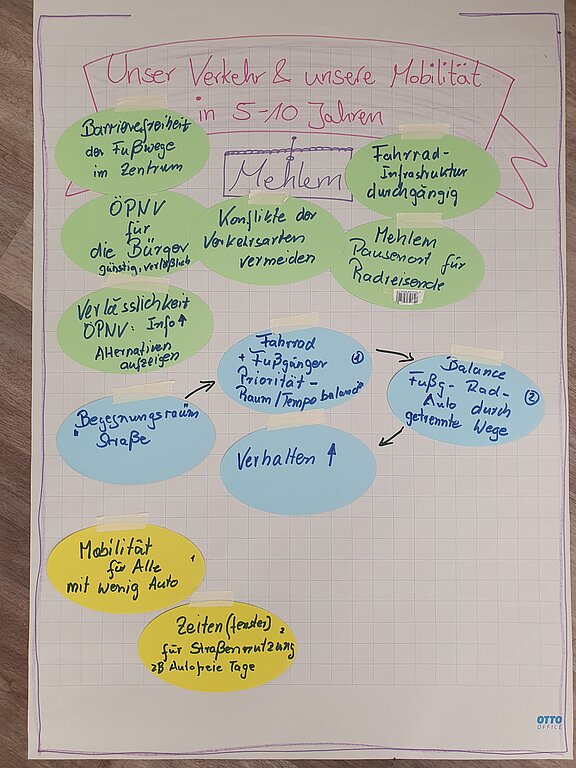 Unser Verkehr & unsere Mobilität
in 5-10 Jahren
Mehlem
Barrierefreiheit
der Fußwege
im Zentrum
Fahrrad-
Infrastruktur
durchgängig
ÖPNV
für
die Bürger
günstig, verläßlich
Konflikte der
Verkehrsarten
vermeiden
Mehlem
Pausenort für
Radreisende
Verlässlichkeit
ÖPNV: Info↑
Alternativen
aufzeigen
Fahrrad
+ Fußgänger ①
Priorität -
Raum/Tempobalance
Balance
Fußg-Rad- ②
Auto durch
getrennte Wege
Begegnungsraum
Straße
Verhalten ↑
Mobilität 1
für Alle
mit wenig Auto
Zeiten(fenster) 2
für Straßennutzung
zB Autofreie Tage
OTTO
OFFICE